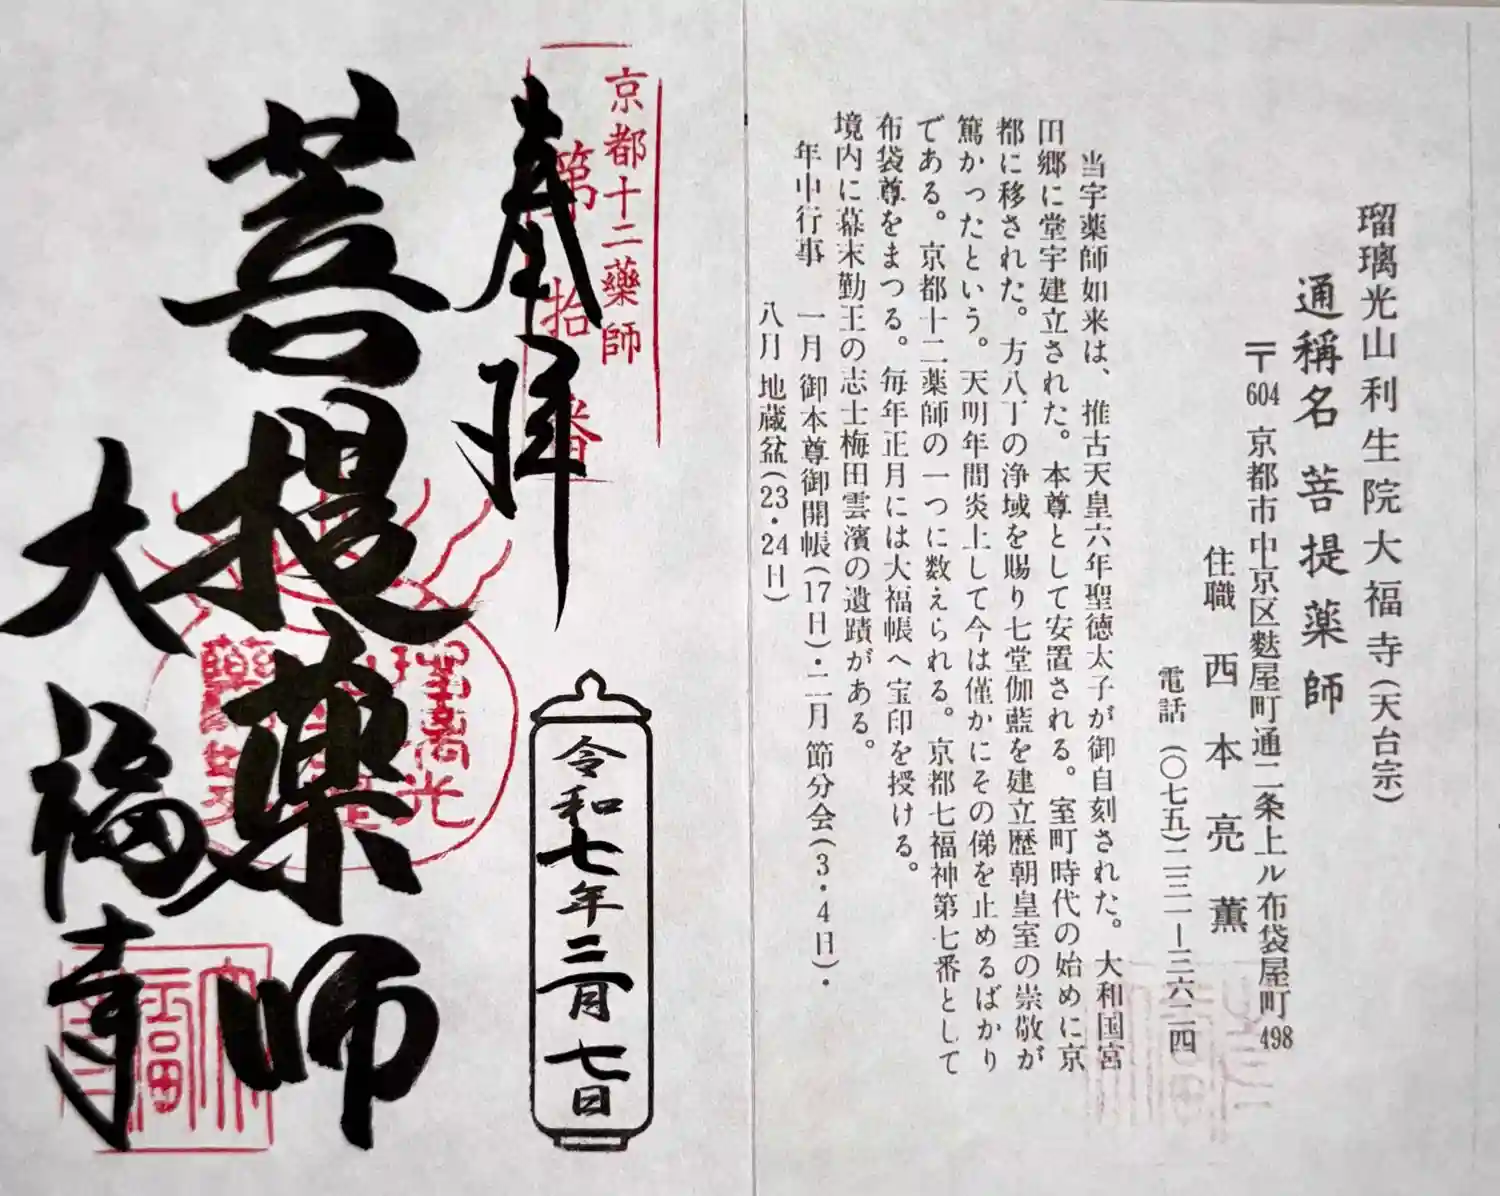 瑠璃光山利生院大福寺（天台宗）
通稱名 菩提薬師
〒604 京都市中京区麩屋町通二条上ル布袋屋町498
住職 西本亮薫
電話（〇七五）二三一ー三六二四
当宇薬師如来は、推古天皇六年聖徳太子が御自刻された。大和国宮
田郷に堂宇建立された。本尊として安置される。室町時代の始めに京
都に移された。方八丁の浄域を賜り七堂伽藍を建立歴朝皇室の崇敬が
篤かったという。天明年間炎上して今は僅かにその俤を止めるばかり
である。京都十二薬師の一つに数えられる。京都七福神第七番として
布袋尊をまつる。毎年正月には大福帳へ宝印を授ける。
境内に幕末勤王の志士梅田雲濱の遺蹟がある。
年中行事 一月 御本尊御開帳（17日）・二月 節分会（3・4日）・
八月 地蔵盆（23・24日）
京都十二薬師
第拾番
奉拝
令和七年三月七日
菩提薬師
瑠璃光
大福寺
大福寺